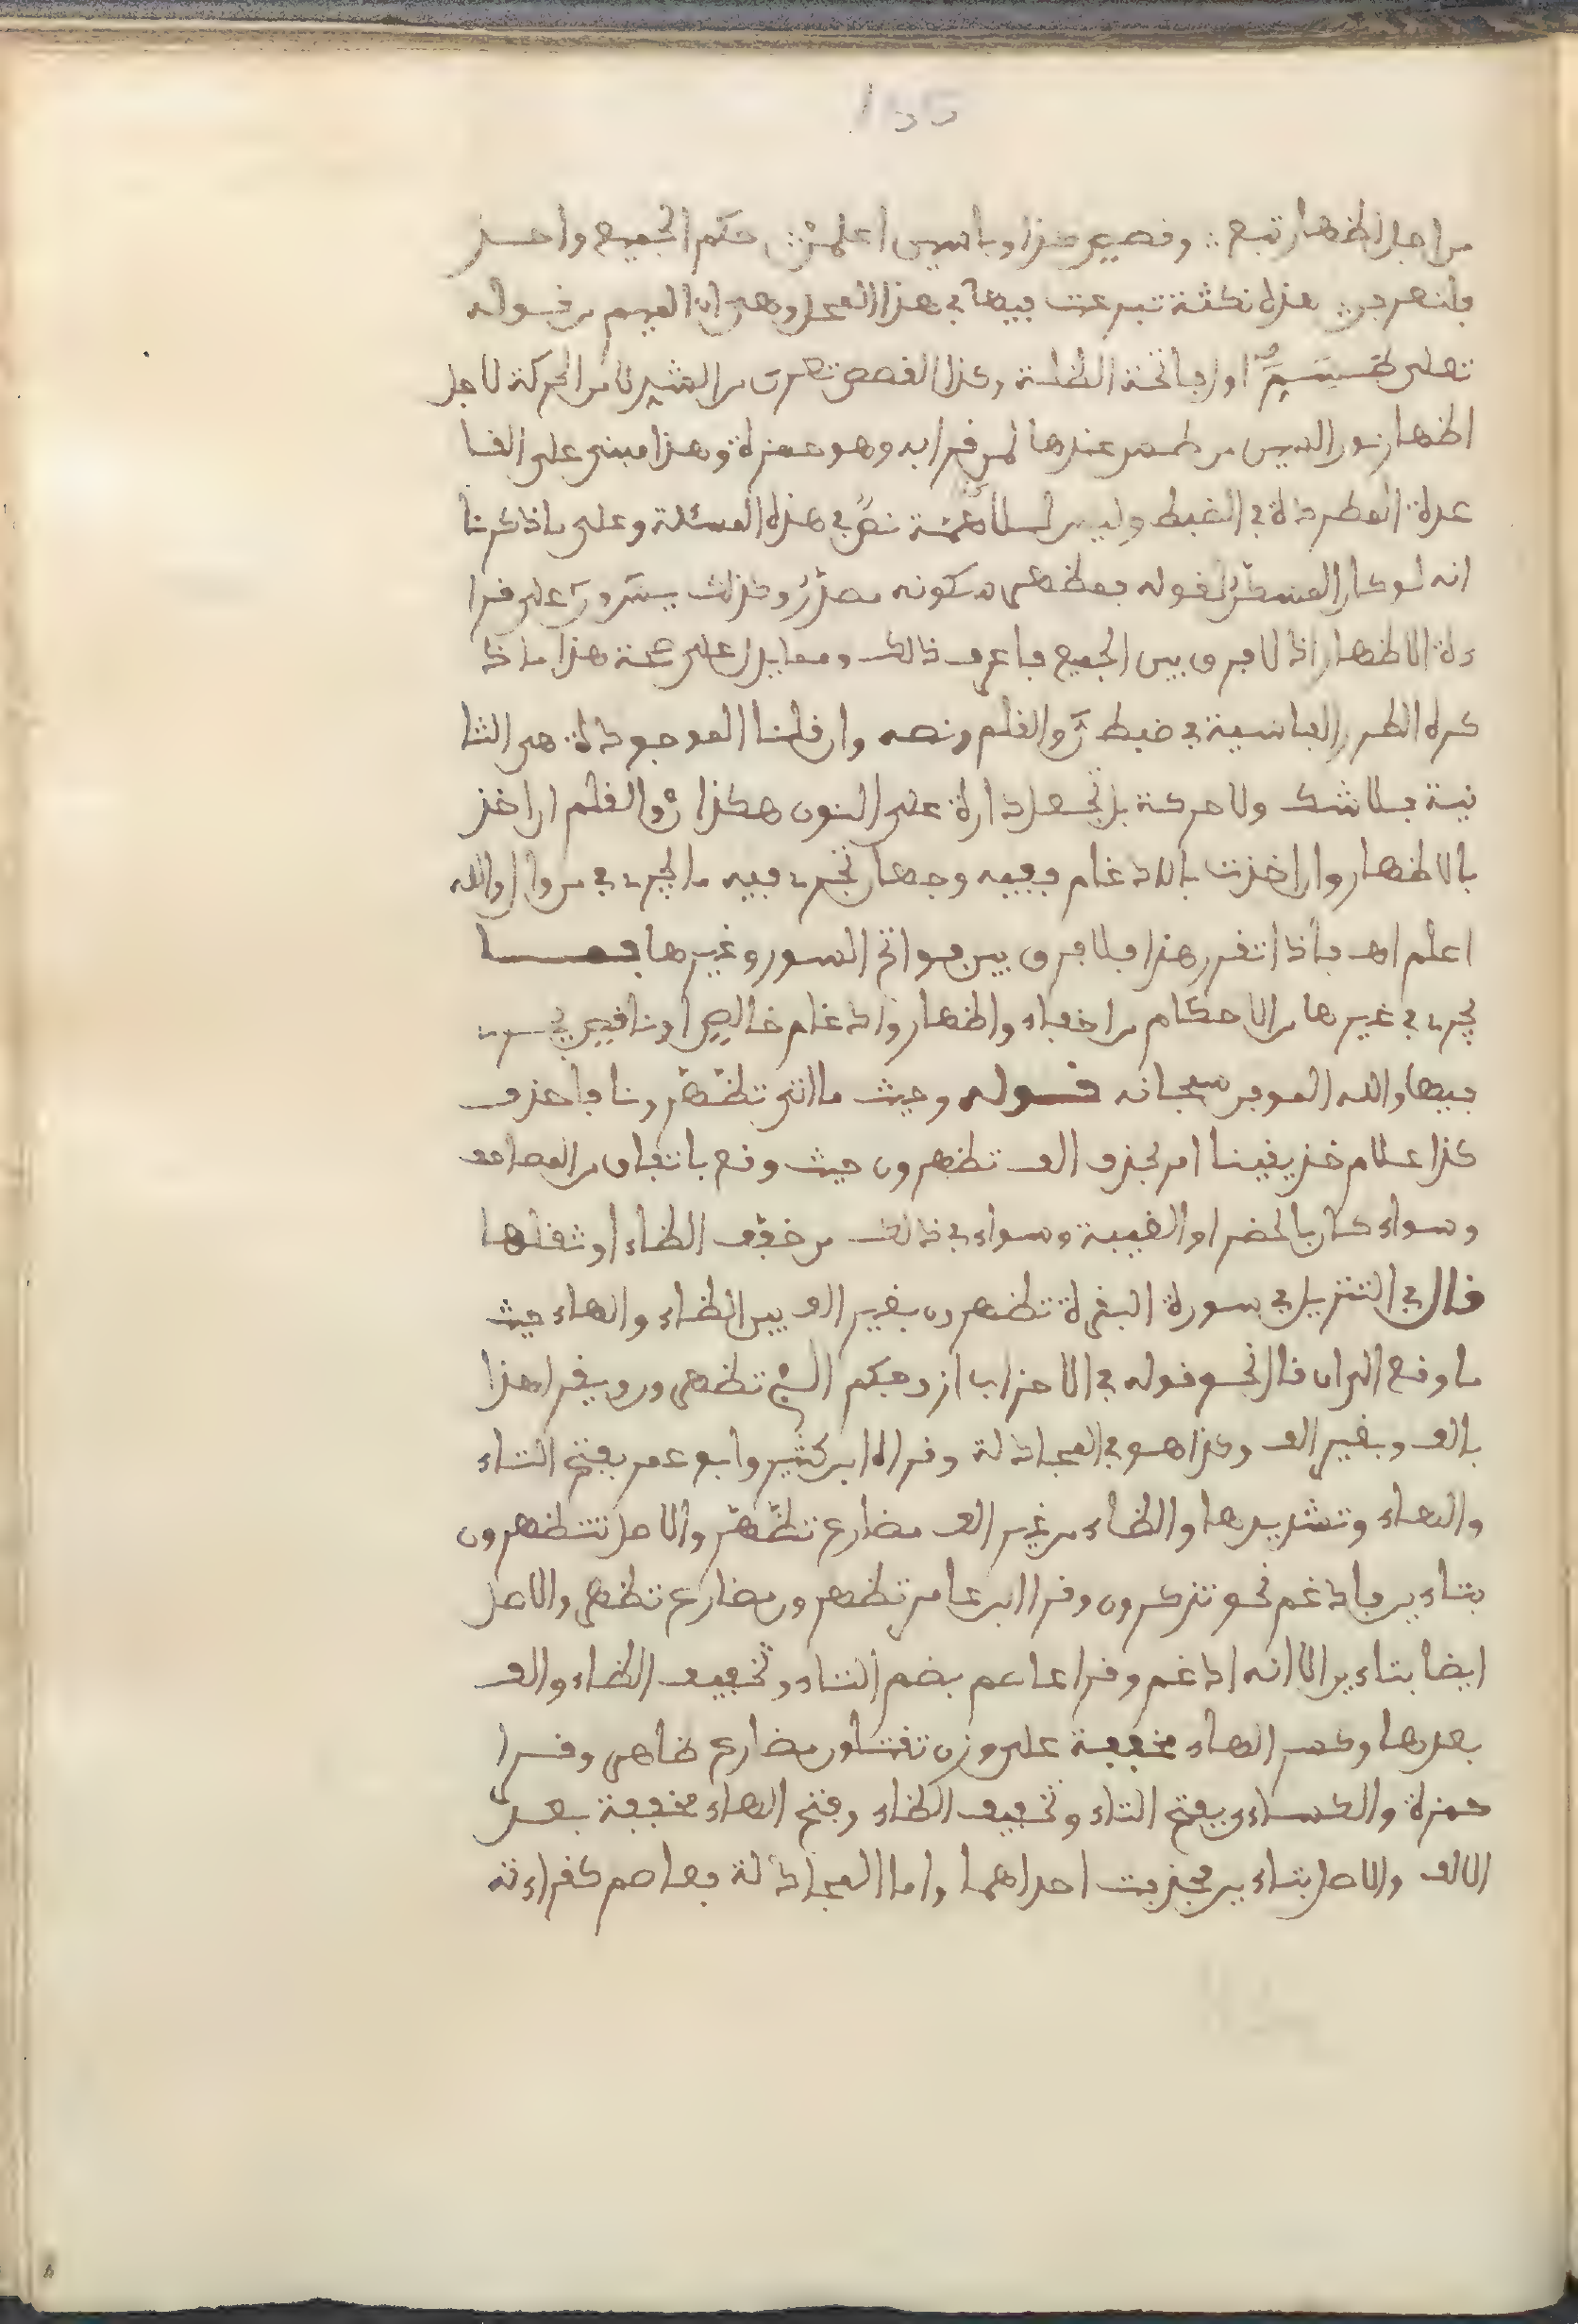 155
من اجل اظهار تبع ∴ وفصيص هذا وياسين اعلمن ∴ حكم الجميع واحد
فلتعرفن ∴ هذه نكتة تبرعت بيها في هذا المحل وهي ان الميم من قوله
تعلى طسم اول فاتحة الظلة وكذا القصص تعرى من التشديد لا من الحركة لاجل
اظهار نون السين من طسم عندها لمن قرا به وهو حمزة وهذا مبني على القا
عدة المطردة في الضبط وليس لسلا نص في هذه المسئلة وعلى ما ذكرنا
انه لو كان المسطر لقوله بمظهر سكونه مصدر وكذلك يس و ن على قرا
ءة الاظهار اذ لا فرق بين الجميع فاعرف ذالك ومما يدل على صحة هذا ما ذ
كره الطرر الفاسية في ضبط ن والقلم ونصه وان قلنا الموجودة هي الثا
نية بلا شك ولا حركة بل تجعل دارة على النون هكذا ن والقلم ان اخذ
بالاظهار وان اخذت بالادغام ففيه وجهان تجري فيه ما يجري في من وال والله
اعلم اهـ فاذا تقرر هذا فلا فرق بين فواتح السور وغيرها فمـا
يجري في غيرها من الاحكام من اخفاء واظهار وادغام خالص او ناقص يجـري
فيها والله الموفق سبحانه قوله وحيث ما اتى تظهرونا فاحذف
كذا علام خذ يقينا امر بحذف الف تظهرون حيث وقع باتفاق من المصاحف
وسواء كان بالحضر او الغيبة وسواء في ذالك من خفف الظاء او ثقلها
قال في التنزيل في سورة البقرة تظهرون بغير الف بين الظاء والهاء حيث
ما وقع القران قال نحو قوله في الاحزاب ازوجكم الـى تظهرون ويقرا هذا
بالف وبغير الف وكذا هو في المجادلة وقراه ابن كثير وابو عمر بفتح التاء
والهاء وتشديدها والظاء من غير الف مضارع تظهر والاصل تتظهرون
بتاءين فادغم نحو تذكرون وقرا ابن عامر تظهرون مضارع تظهر والاصل
ايضا بتاءين الا انه ادغم وقرا عاصم بضم التاء وتخفيف الظاء والف
بعدها وكسر الهاء مخففة على وزن تقتلون مضارع ظاهر وقـرا
حمزة والكساءي بفتح التاء وتخفيف الظاء وفتح الهاء مخففة بعد
الالف والاصل بتاءين فحذفت احداهما واما المجادلة فعاصم كقراءته